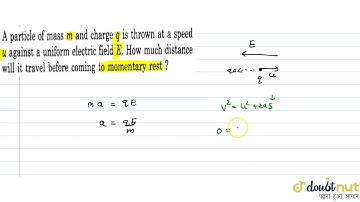 A particle of mass m and charge q is thrown at a speed
u against a uniform electric field E. How much distance
will it travel before coming to momentary rest ?
E
q u
ma = qE
a = qE/m
v² = u² + 2as
0 =
doubtnut
पढ़ना हुआ आसान